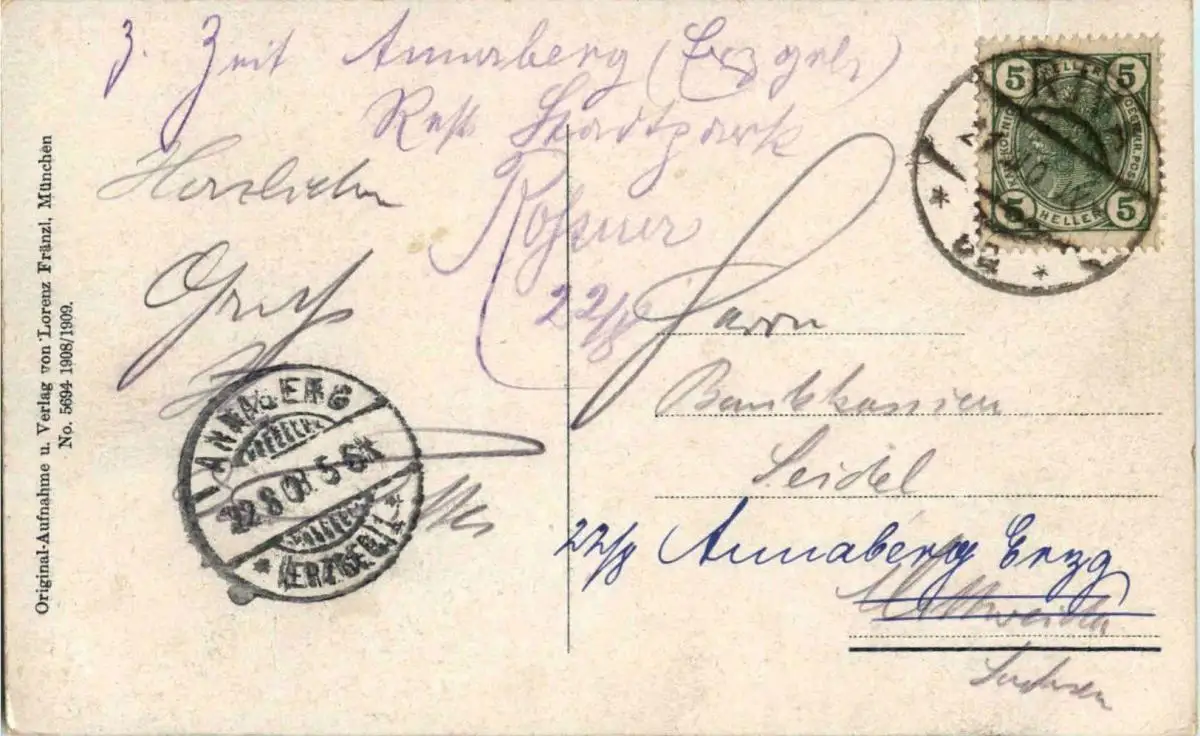 z. Zeit Annaberg (Erzgeb)
Rest. Stadtpark
Herzlichen
Gruß
22/8
Herrn
Bankkassier
Seidel
22/8 Annaberg Erzg.
Mittweida
Sachsen
ANNABERG
22.8.08. 5-6N
* (ERZGEB.) 1 *
5 HELLER 5
5 HELLER 5
Original-Aufnahme u. Verlag von Lorenz Fränzl, München
No. 5694 1908/1909.